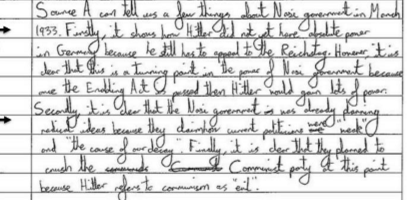 Source A can tell us a few things about Nazi government in March
1933. Firstly, it shows how Hitler did not yet have absolute power
in Germany because he still has to appeal to the Reichstag. However, it is
clear that this is a turning point in the power of Nazi government because
once the Enabling Act is passed then Hitler would gain lots of power.
Secondly, it is clear that the Nazi government was already planning
radical ideas because they claim how current politicians were "weak"
and "the cause of our decay". Finally, it is clear that they planned to
crush the Communist party at this point
because Hitler refers to communism as "evil".